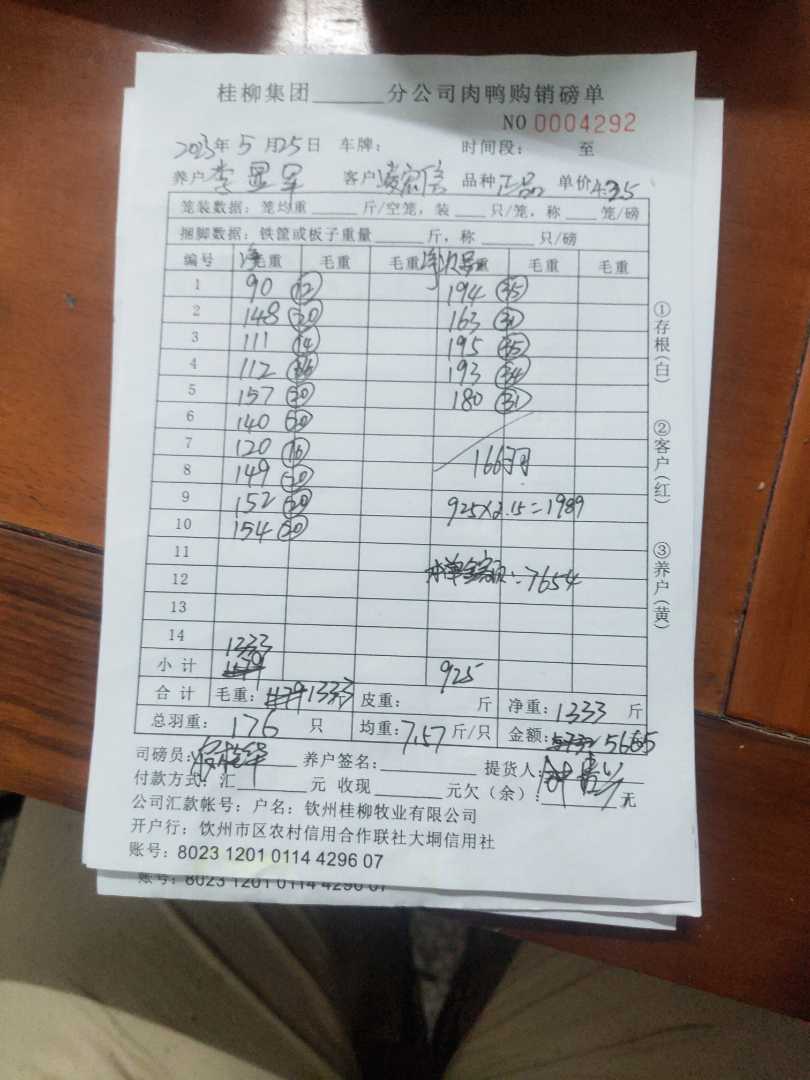 桂柳集团______分公司肉鸭购销磅单
NO 0004292
2023年 5 月25日 车牌： 时间段： 至
养户 李显军 客户 凌宏信 品种 正品 单价 4.25
笼装数据：笼均重_____斤/空笼，装___只/笼，称___笼/磅
捆脚数据：铁筐或板子重量_____斤，称_____只/磅
编号 净毛重 毛重 毛重 净次品重 毛重 毛重
1 90 12 194 35
2 148 20 163 31
3 111 14 195 35
4 112 193 34
5 157 20 180 31
6 140 20
7 120 16 166羽
8 149 20
9 152 20 925×2.15=1989
10 154 20
11
12 本单金额：7654
13
14
小计 1333 925
合计 毛重：1333 皮重： 斤 净重：1333 斤
总羽重：176 只 均重：7.57 斤/只 金额：5665
司磅员： 养户签名：______ 提货人：
付款方式：汇______元 收现______元欠（余）：______无
公司汇款帐号：户名：钦州桂柳牧业有限公司
开户行：钦州市区农村信用合作联社大垌信用社
账号：8023 1201 0114 4296 07
账号：8023 1201 0114 4296 07
①存根（白） ②客户（红） ③养户（黄）